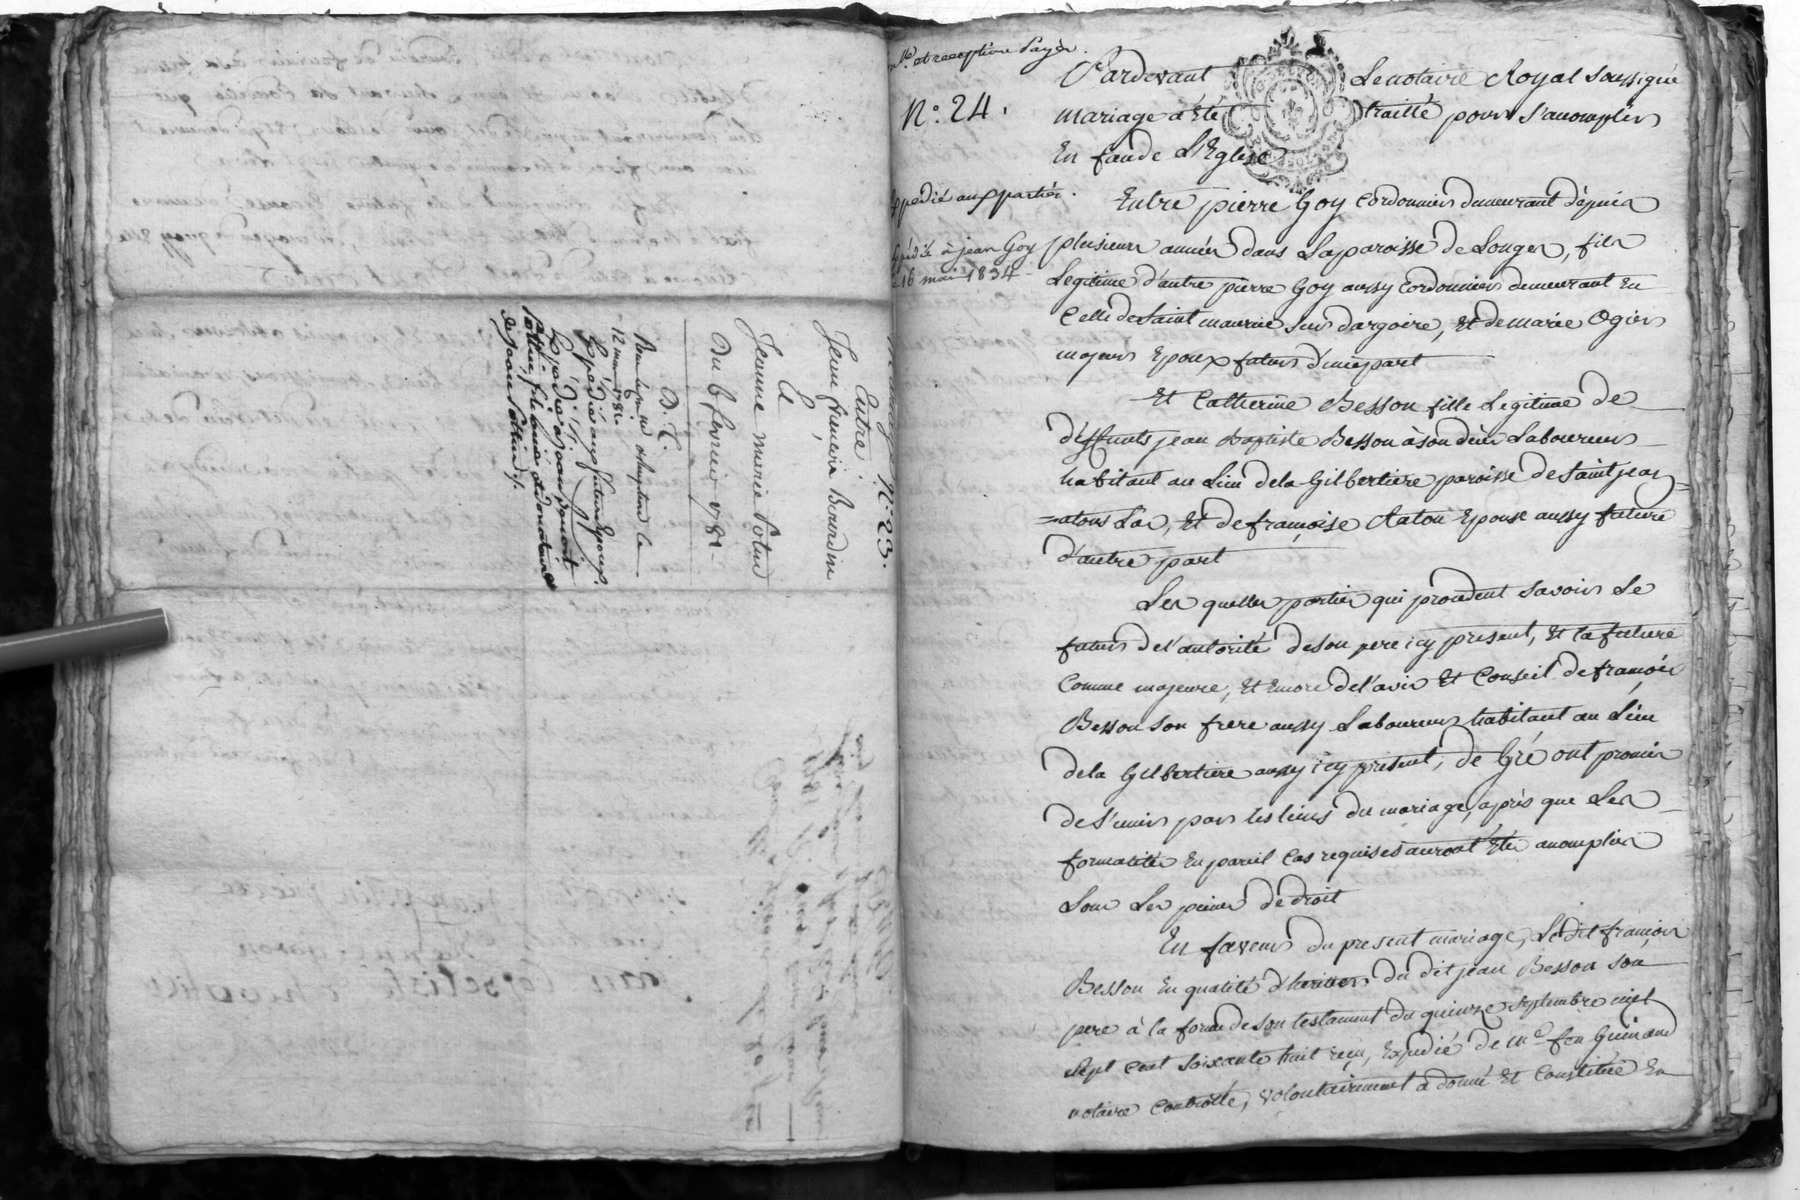 Mariage N.° 23.
Entre
Jean françois Bourdin
Et
Jeanne marie Poture
Du 6 fevrier 1781
D. C.
12 mars 1781
Expedié aux futurs Epoux
et reception Payés.
N.° 24.
Expedié aux parties.
Expédié à jean Goy
le 16 mai 1834
Pardevant Le notaire Royal soussigné
mariage a Eté traitté pour s'accomplir
En face de L'Eglise
Entre pierre Goy Cordonnier demeurant depuis
plusieurs années dans La paroisse de Longes, fils
Legitime d'autre pierre Goy aussy Cordonnier demeurant En
Celle de Saint maurice sur dargoire, Et de marie Ogier
majeur Epoux futur d'une part
Et Catherine Besson fille Legitime de
deffunts jean Baptiste Besson à son decès Laboureur
habitant au Lieu de la Gilbertiere paroisse de saint jean
=atouslas, Et de françoise Raton Epouse aussy future
d'autre part
Les quelles parties qui procedent savoir Le
futur de l'autorité de son pere icy present, Et la future
Comme majeure, Et Encore de l'avis Et Conseil de françois
Besson son frere aussy Laboureur habitant au Lieu
de la Gilbertiere aussy icy présent, de Gré ont promis
de s'unir par les liens du mariage, après que Les
formalités En pareil Cas requises auront Eté accomplies
sous Les peines de droit
En faveur du present mariage, Ledit françois
Besson En qualité d'heritier du dit jean Besson son
pere à la forme de son testament du quinze Septembre mil
sept Cent soixante huit reçu, Expedié de m.e feu Guinand
notaire Controllé, volontairement a donné Et Constitué En